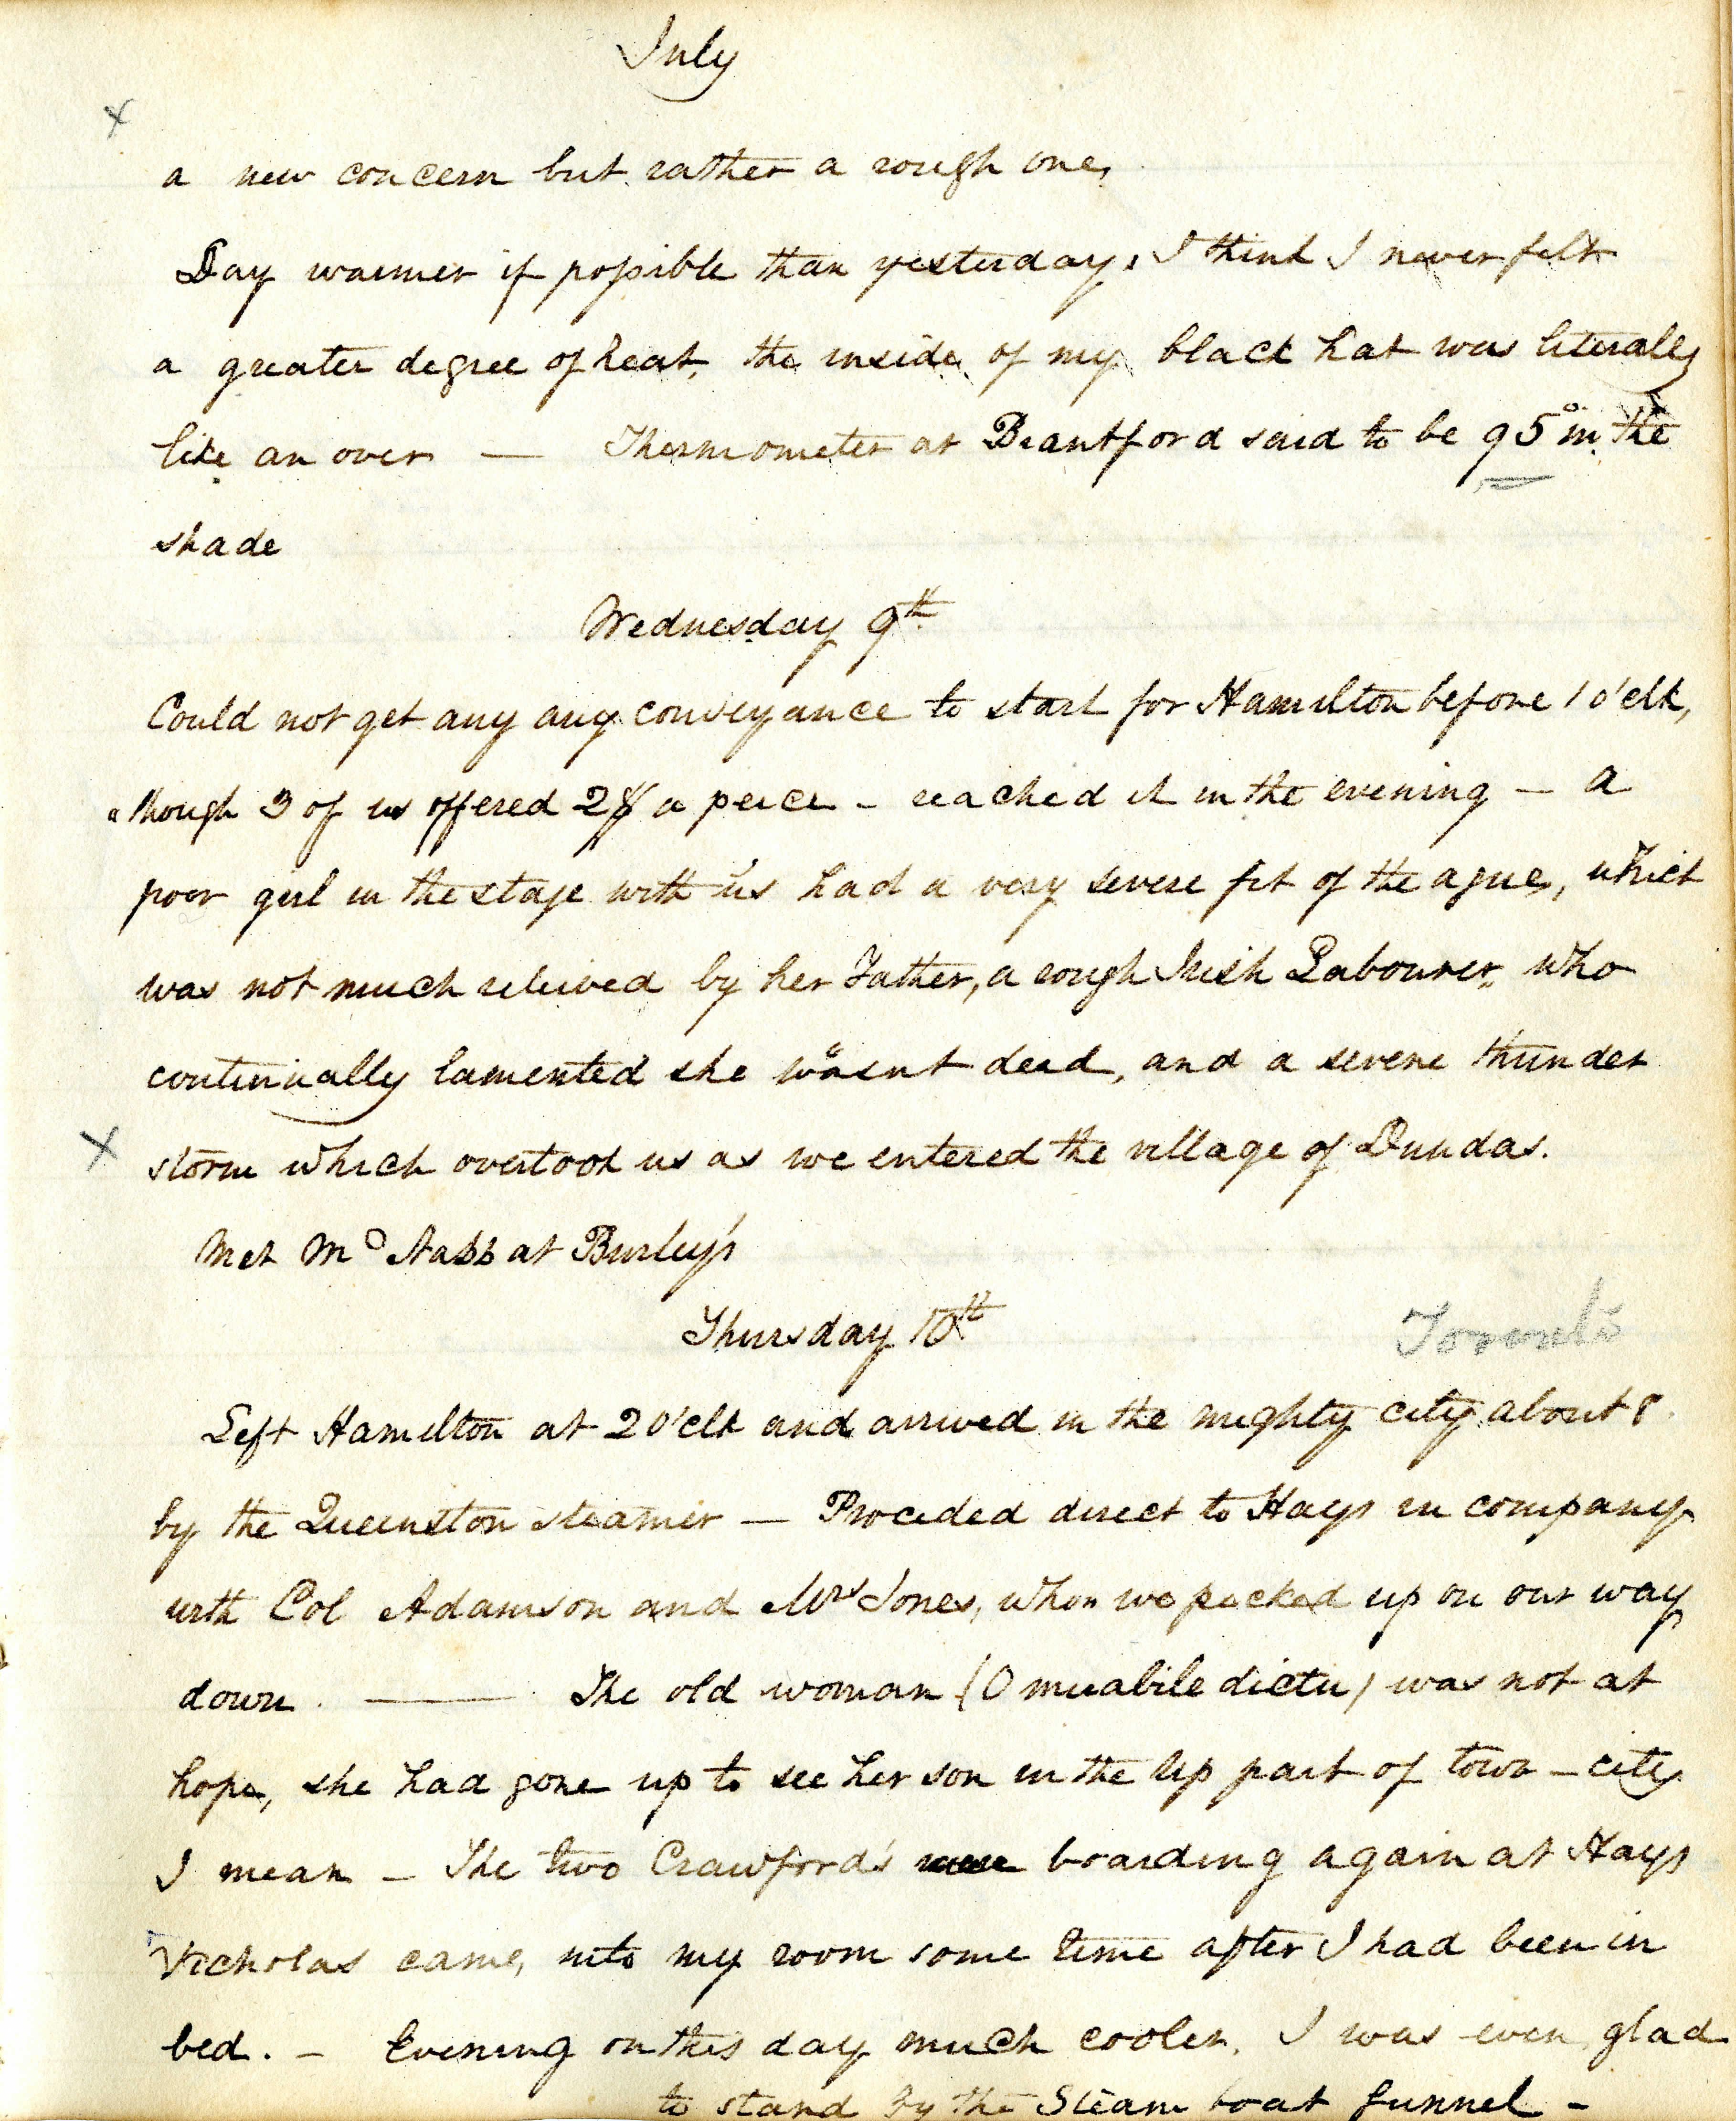 July
a new concern but rather a rough one,
Day warmer if possible than yesterday, I think I never felt
a greater degree of heat, the inside of my black hat was literally
like an oven — Thermometer at Brantford said to be 95° in the
shade
Wednesday 9th
Could not get any any conveyance to start for Hamilton before 1 o'clk,
although 3 of us offered 2$ a peice - reached it in the evening — a
poor girl in the stage with us had a very severe fit of the ague, which
was not much releived by her Father, a rough Irish Labourer, who
continually lamented she wasnt dead, and a severe thunder
storm which overtook us as we entered the village of Dundas.
Met Mc Nabb at Burley's
Thursday 10th
Toronto
Left Hamilton at 2 o'clk and arrived in the mighty city about 8
by the Queenston steamer — Proceded direct to Hays in company
with Col Adamson and Mrs Jones, whom we picked up on our way
down. — The old woman (O mirabile dictu) was not at
hope, she had gone up to see her son in the up part of town - city
I mean - The two Crawford's were boarding again at Hays
Nicholas came, into my room some time after I had been in
bed. - Evening on this day much cooler, I was even glad
to stand by the Steam boat funnel -